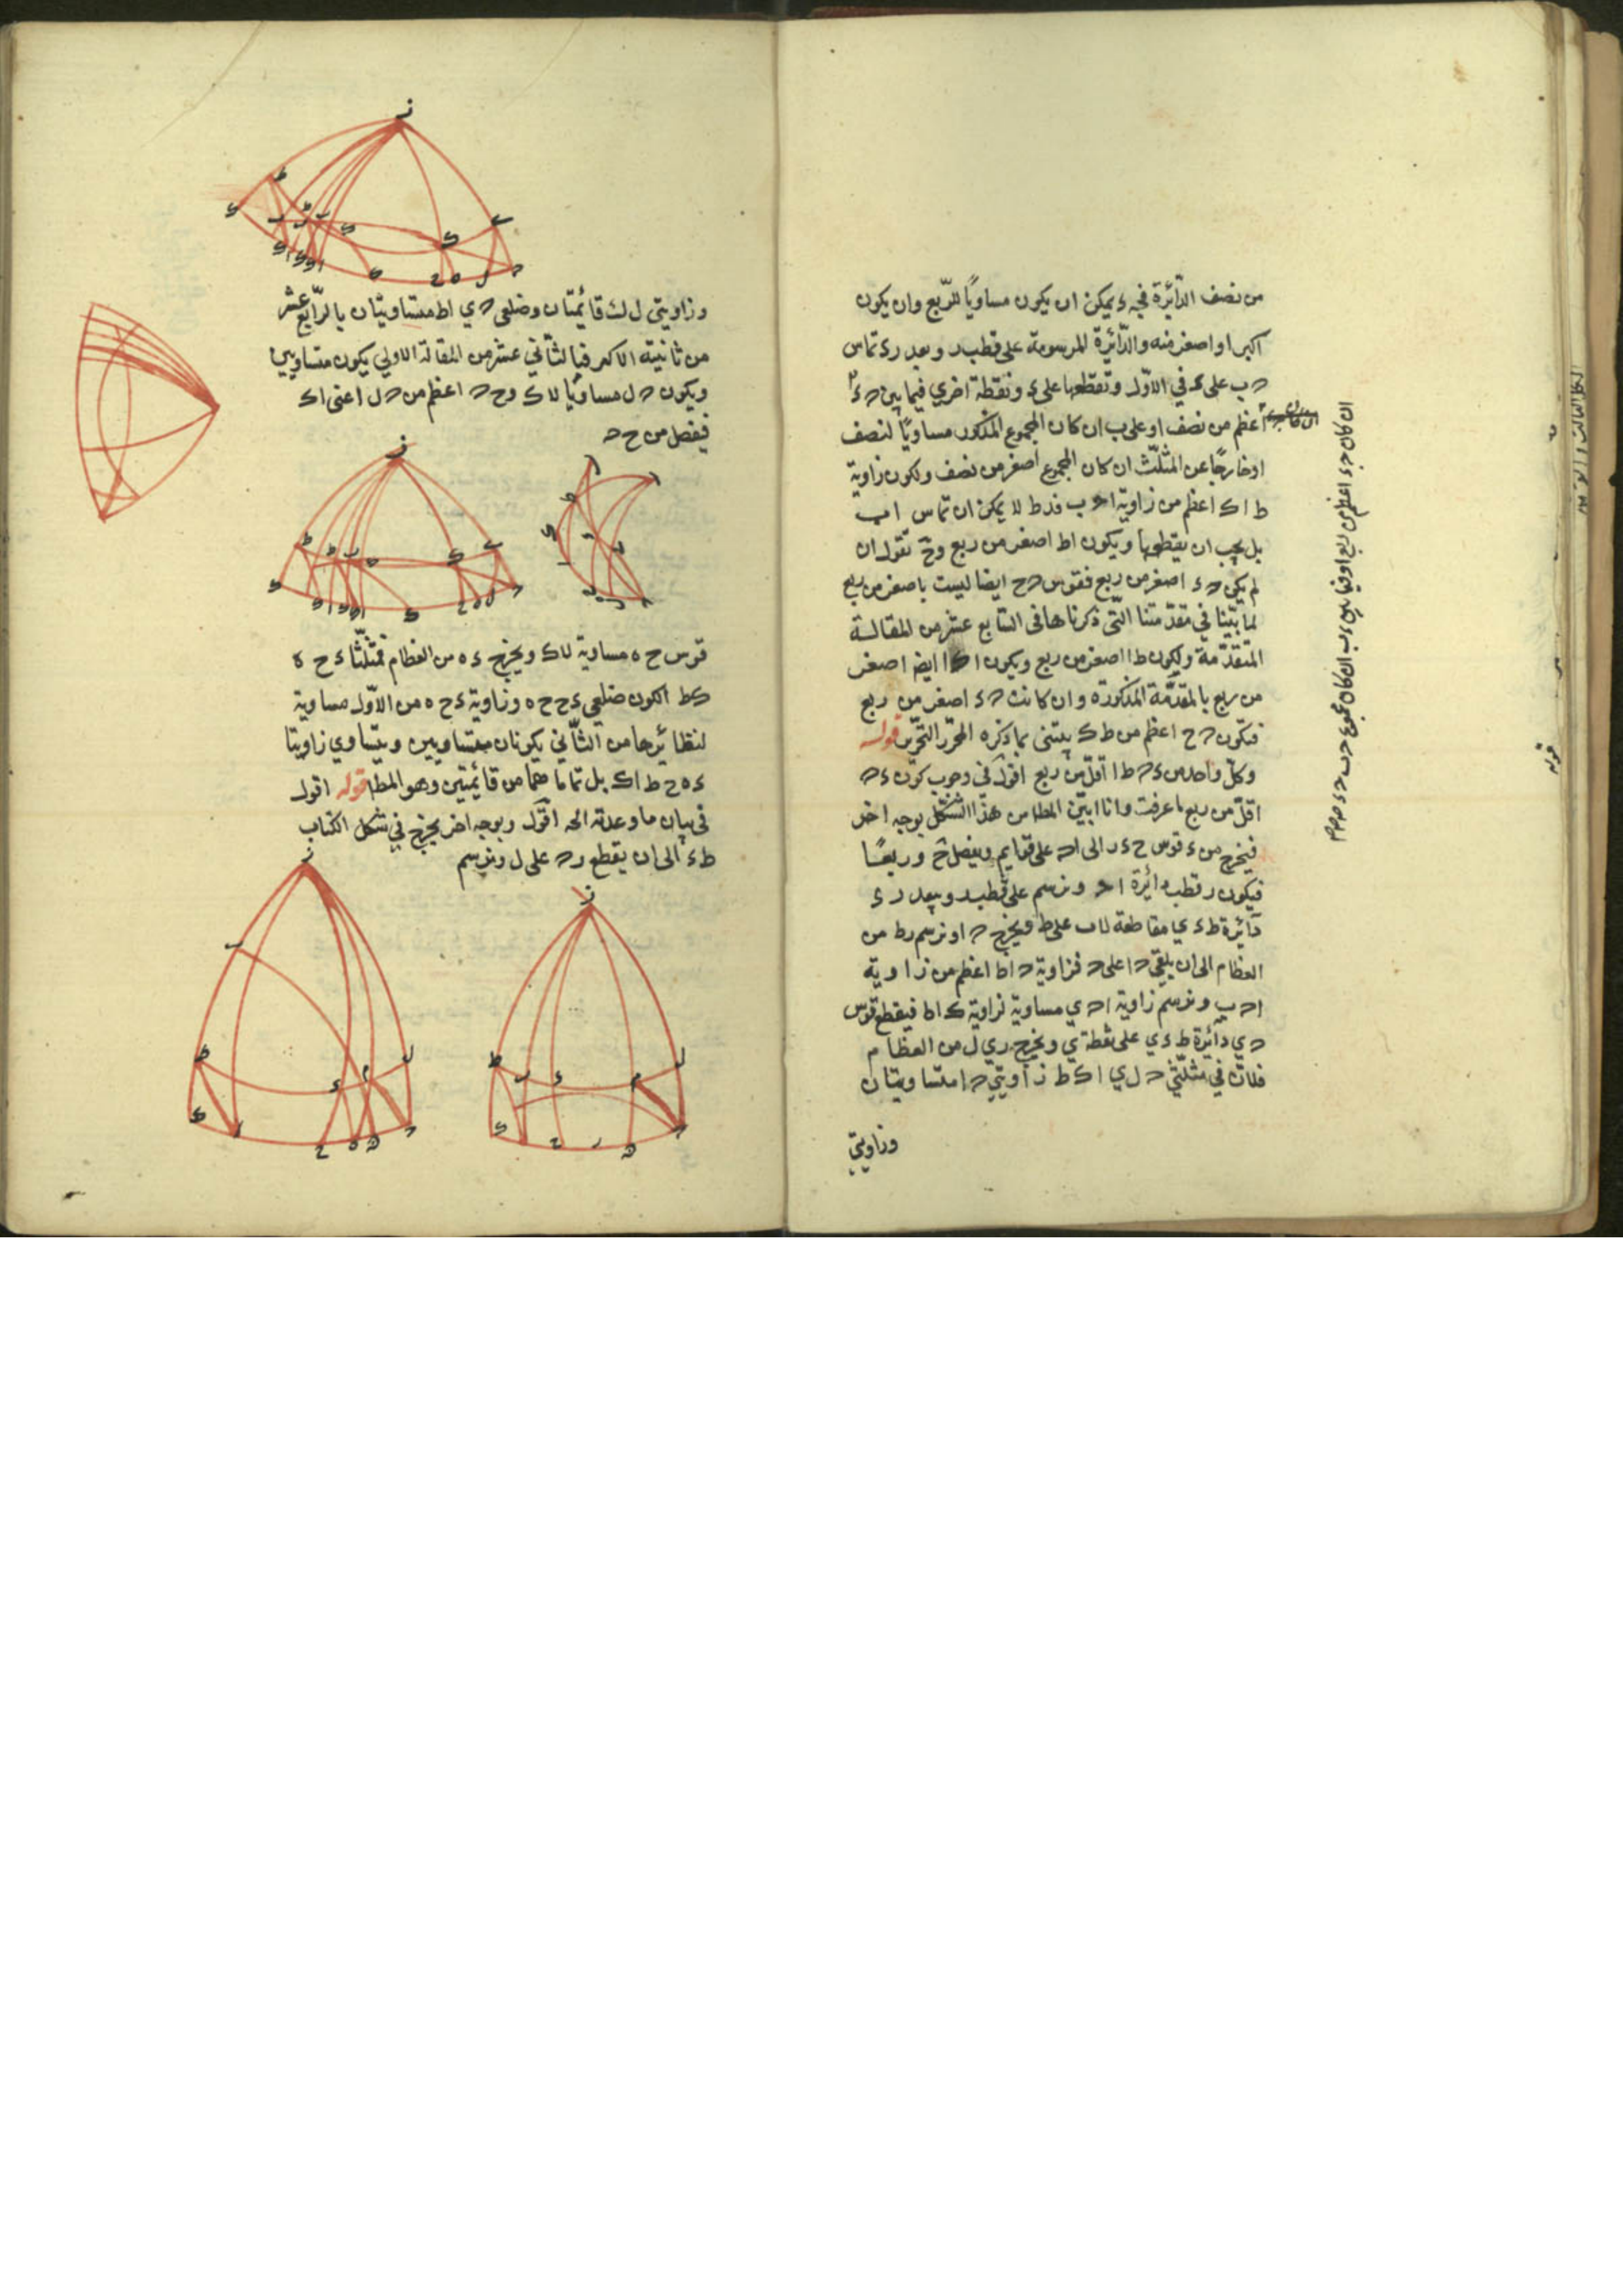 من نصف الدّائرة فجـ ء يمكن ان يكون مساويًا للرّبع وان يكون
اكبر او اصغر منه والدّائرة المرسومة على قطب ر وبعد ر ء تماس
حـ ب على ء في الاوّل وتقطعها على ء ونقطة اخرى فيما بين حـ ء
اعظم من نصف او على ب ان كان المجموع المذكور مساويًا لنصف
او خارجًا عن المثلّث ان كان المجموع اصغر من نصف ولكون زاوية
ط ا ك اعظم من زاوية ا حـ ب فد ط لا يمكن ان تماس ا ب
بل يجب ان يقطعها ويكون اط اصغر من ربع وحَ نقول ان
لم يكن حـ ء اصغر من ربع فقوس حـ ح ايضا ليست باصغر من ربع
لما بيّنا في مقدّمتنا الّتي ذكرناها في السّابع عشر من المقالة
المتقدّمة ولكون ط ا اصغر من ربع ويكون ا ك ايضا اصغر
من ربع بالمقدّمة المذكورة وان كانت حـ ء اصغر من ربع
فتكون حـ ح اعظم من ط ك يبتنى بما ذكره المحرّر التحرير قوله
وكلّ واحد من ء حـ ط ا اقلّ من ربع اقول في وجوب كون ء حـ
اقلّ من ربع ما عرفت وانا ابيّن المط من هذا الشّكل بوجه اخر
فيخرج من ء قوس ح ء ر الى ا حـ على قوايم ويفصل ح ر ربعًا
فيكون ر قطب دائرة ا حـ ونرسم على قطب ر وببعد ر ء
دائرة ط ء ي مقاطعة لا ب على ط ويخرج حـ ا ونرسم ر ط من
العظام الى ان يلقى حـ ا على ك فزاوية ك ا ط اعظم من زاوية
ا حـ ب ونرسم زاوية ا حـ ي مساوية لزاوية ك ا ط فيقطع قوس
حـ ي دائرة ط ء ي على نقطة ي ويخرج ر ي ل من العظام
فلانّ في مثلّثي حـ ل ي ا ك ط زاويتي حـ ا متساويتان
وزاويتي
وزاويتي ل ك قائمتان وضلعي حـ ي ا ط متساويتان بالرّابع عشر
من ثانية الاكر فبالثّاني عشر من المقالة الاولى يكون متساويين
ويكون حـ ل مساويًا لا ك وح حـ اعظم من حـ ل اعنى ا ك
فيفصل من ح حـ
قوس ح ه مساوية لا ك ويخرج ء ه من العظام فمثلّثا ء ح ه
ك ط ا لكون ضلعي ء ح ح ه وزاوية ء ح ه من الاوّل مساوية
لنظائرها من الثّاني يكونان متساويين ويتساوي زاويتا
ء ه ح ط ا ك بل تماما هما من قائمتين وهو المط قوله اقول
في بيان ما وعدته الخ اقول وبوجه اخر يخرج في شكل الكتاب
ط ء الى ان يقطع ر حـ على ل ونرسم